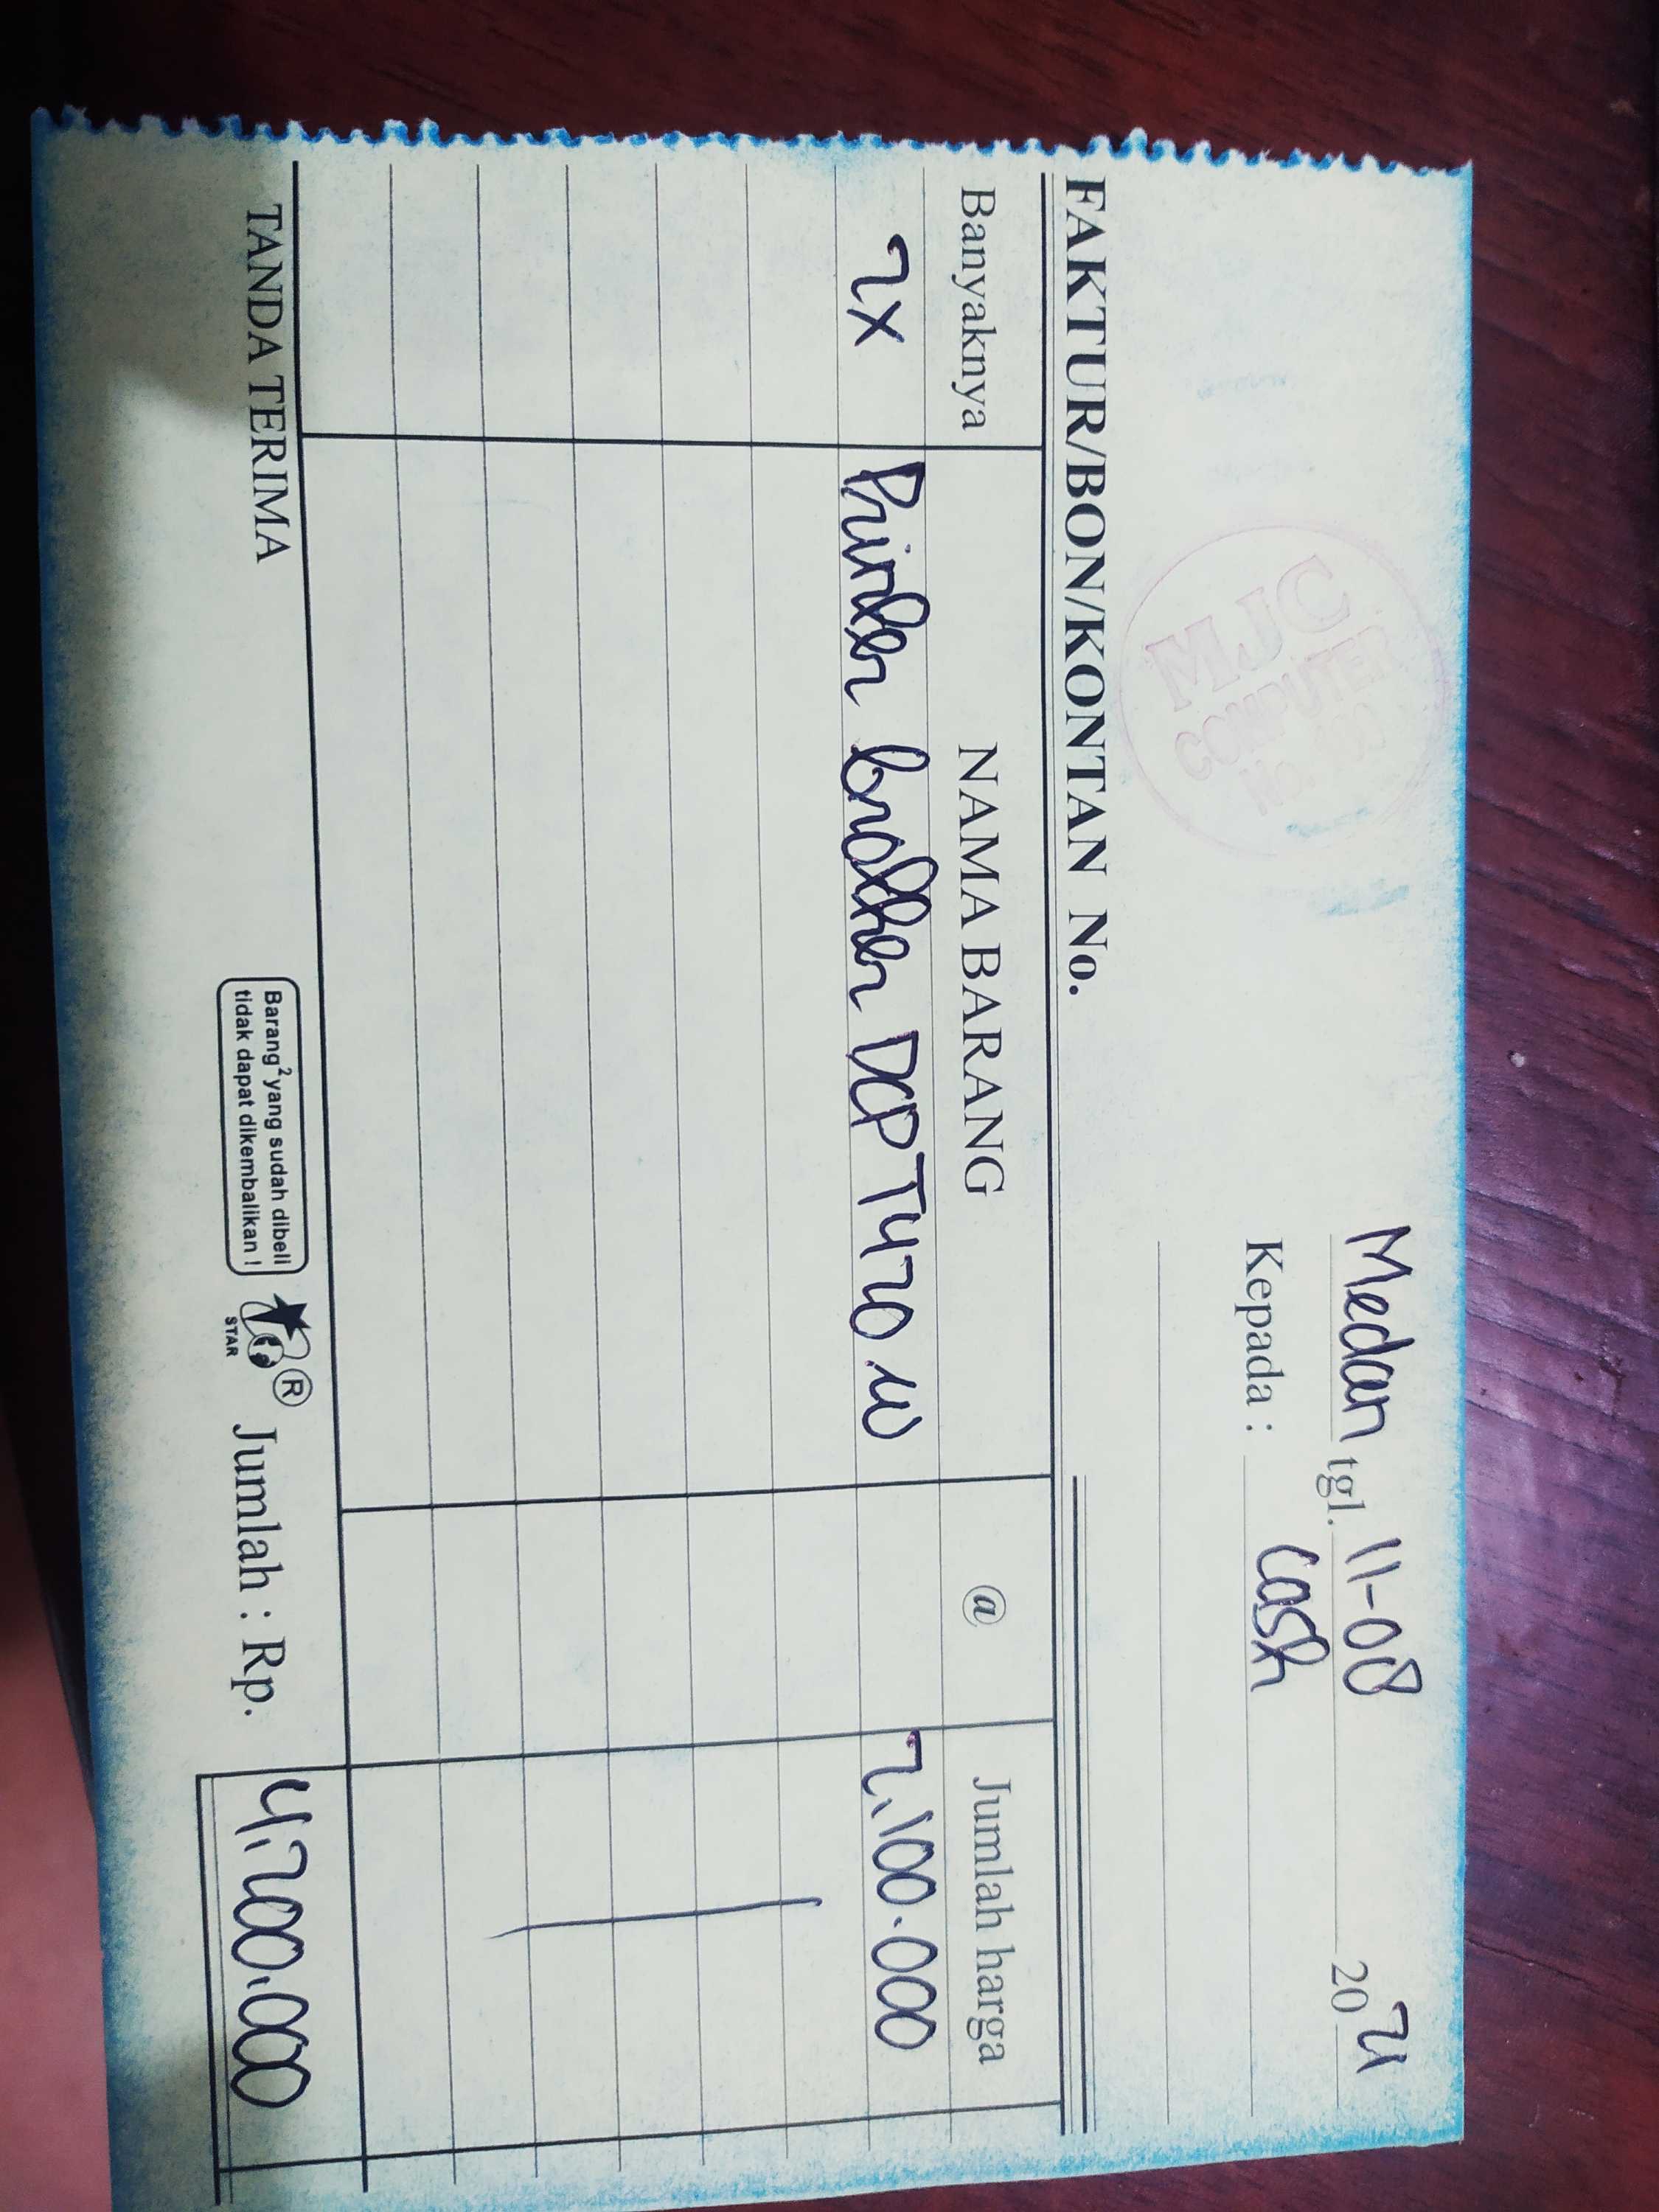 Medan tgl. 11-08 2021
Kepada : Cash
MJC
COMPUTER
FAKTUR/BON/KONTAN No.
Banyaknya NAMA BARANG @ Jumlah harga
2x Printer brother DCP T420 W 2.100.000
TANDA TERIMA
Barang² yang sudah dibeli
tidak dapat dikembalikan !
STAR
®
Jumlah : Rp. 4.200.000